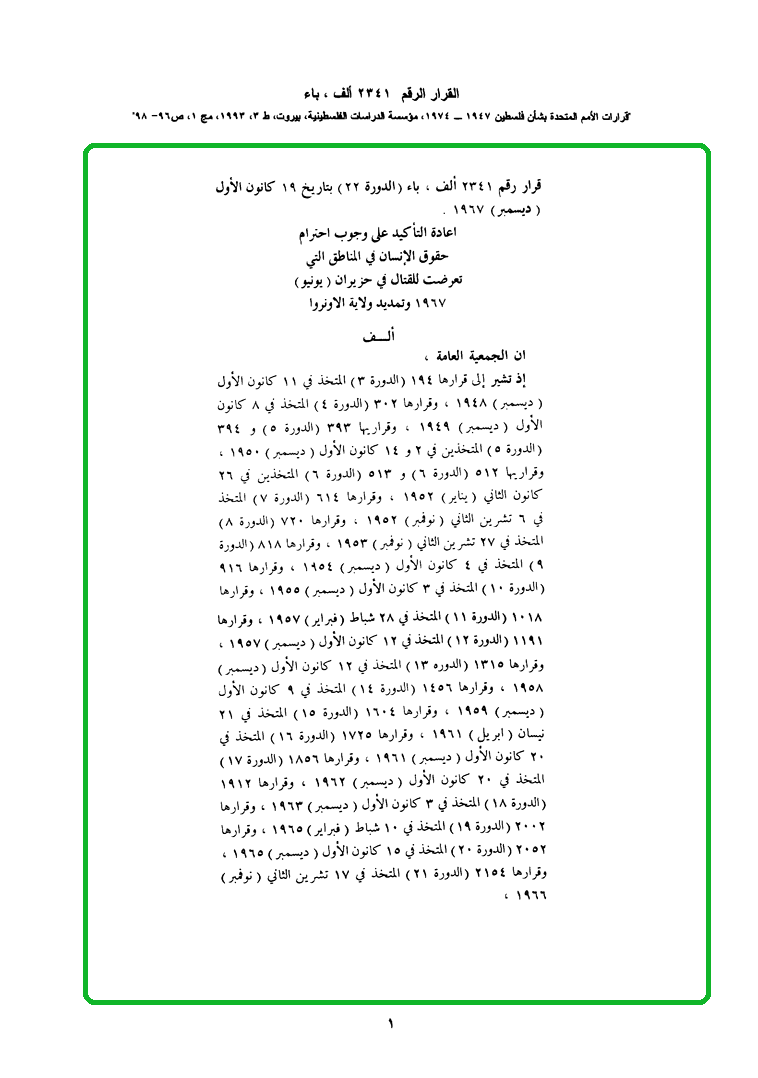 القرار الرقم ٢٣٤١ ألف ، باء
"قرارات الأمم المتحدة بشأن فلسطين ١٩٤٧ – ١٩٧٤، مؤسسة الدراسات الفلسطينية، بيروت، ط ٣، ١٩٩٣، مج ١، ص٩٦– ٩٨"
قرار رقم ٢٣٤١ ألف ، باء (الدورة ٢٢) بتاريخ ١٩ كانون الأول
(ديسمبر) ١٩٦٧ .
اعادة التأكيد على وجوب احترام
حقوق الإنسان في المناطق التي
تعرضت للقتال في حزيران (يونيو)
١٩٦٧ وتمديد ولاية الاونروا
ألــف
ان الجمعية العامة ،
إذ تشير إلى قرارها ١٩٤ (الدورة ٣) المتخذ في ١١ كانون الأول
(ديسمبر) ١٩٤٨ ، وقرارها ٣٠٢ (الدورة ٤) المتخذ في ٨ كانون
الأول (ديسمبر) ١٩٤٩ ، وقراريها ٣٩٣ (الدورة ٥) و ٣٩٤
(الدورة ٥) المتخذين في ٢ و ١٤ كانون الأول (ديسمبر) ١٩٥٠ ،
وقراريها ٥١٢ (الدورة ٦) و ٥١٣ (الدورة ٦) المتخذين في ٢٦
كانون الثاني (يناير) ١٩٥٢ ، وقرارها ٦١٤ (الدورة ٧) المتخذ
في ٦ تشرين الثاني (نوفمبر) ١٩٥٢ ، وقرارها ٧٢٠ (الدورة ٨)
المتخذ في ٢٧ تشرين الثاني (نوفمبر) ١٩٥٣ ، وقرارها ٨١٨ (الدورة
٩) المتخذ في ٤ كانون الأول (ديسمبر) ١٩٥٤ ، وقرارها ٩١٦
(الدورة ١٠) المتخذ في ٣ كانون الأول (ديسمبر) ١٩٥٥ ، وقرارها
١٠١٨ (الدورة ١١) المتخذ في ٢٨ شباط (فبراير) ١٩٥٧ ، وقرارها
١١٩١ (الدورة ١٢) المتخذ في ١٢ كانون الأول (ديسمبر) ١٩٥٧ ،
وقرارها ١٣١٥ (الدوره ١٣) المتخذ في ١٢ كانون الأول (ديسمبر)
١٩٥٨ ، وقرارها ١٤٥٦ (الدورة ١٤) المتخذ في ٩ كانون الأول
(ديسمبر) ١٩٥٩ ، وقرارها ١٦٠٤ (الدورة ١٥) المتخذ في ٢١
نيسان (ابريل) ١٩٦١ ، وقرارها ١٧٢٥ (الدورة ١٦) المتخذ في
٢٠ كانون الأول (ديسمبر) ١٩٦١ ، وقرارها ١٨٥٦ (الدورة ١٧)
المتخذ في ٢٠ كانون الأول (ديسمبر) ١٩٦٢ ، وقرارها ١٩١٢
(الدورة ١٨) المتخذ في ٣ كانون الأول (ديسمبر) ١٩٦٣ ، وقرارها
٢٠٠٢ (الدورة ١٩) المتخذ في ١٠ شباط (فبراير) ١٩٦٥ ، وقرارها
٢٠٥٢ (الدورة ٢٠) المتخذ في ١٥ كانون الأول (ديسمبر) ١٩٦٥ ،
وقرارها ٢١٥٤ (الدورة ٢١) المتخذ في ١٧ تشرين الثاني (نوفمبر)
١٩٦٦ ،
١